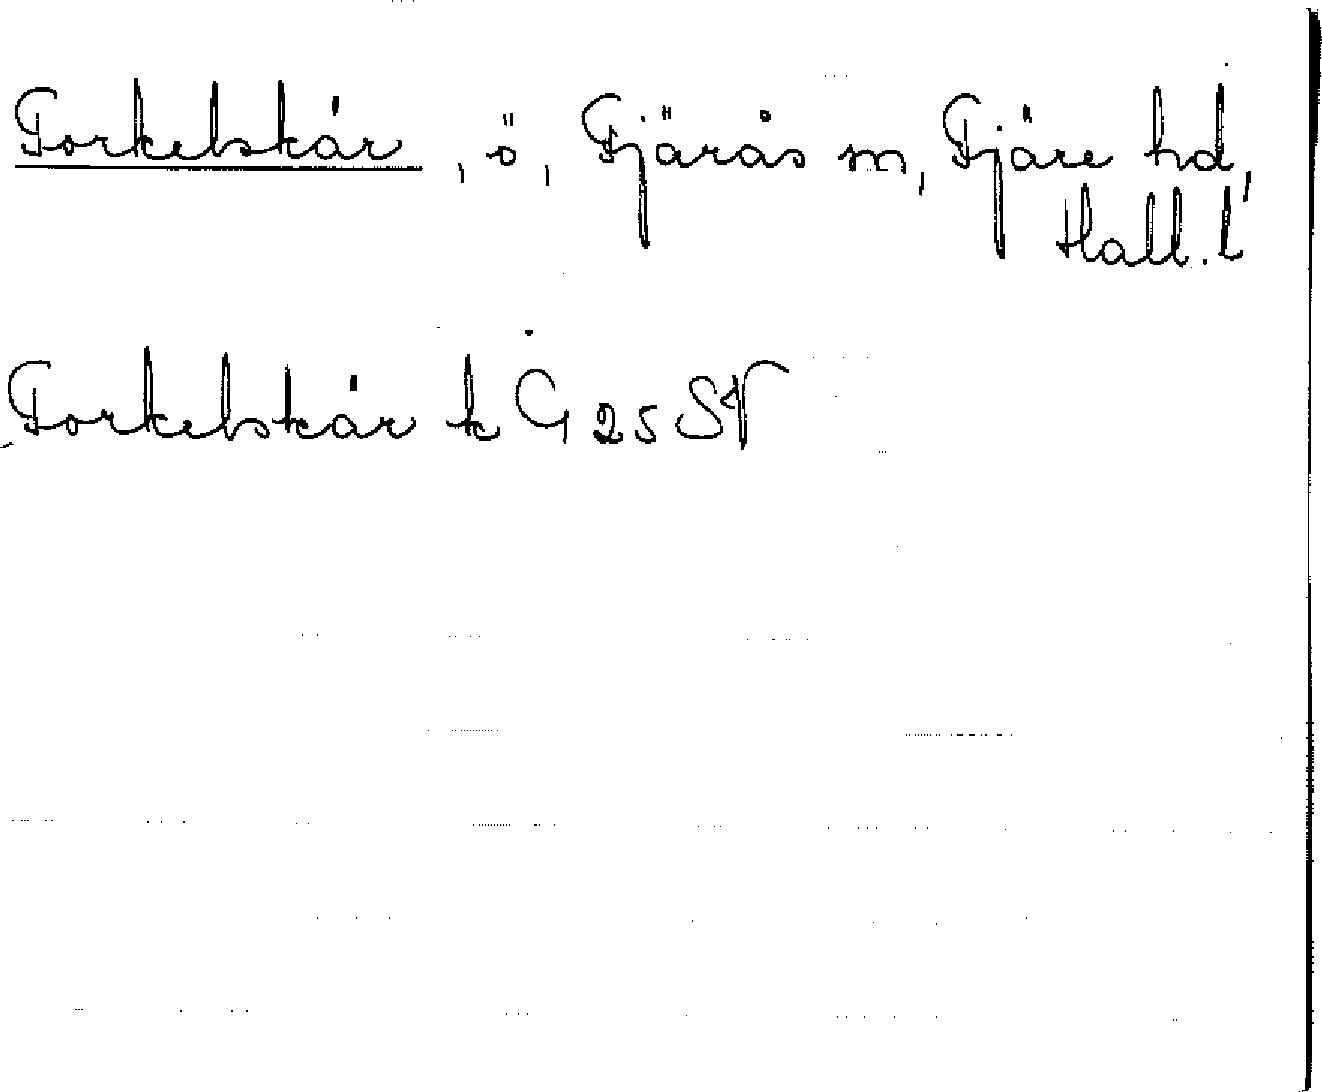 Torkelskär, ö, Fjärås sn, Fjäre hd,
Hall. l
Torkelskär k G 25 SV